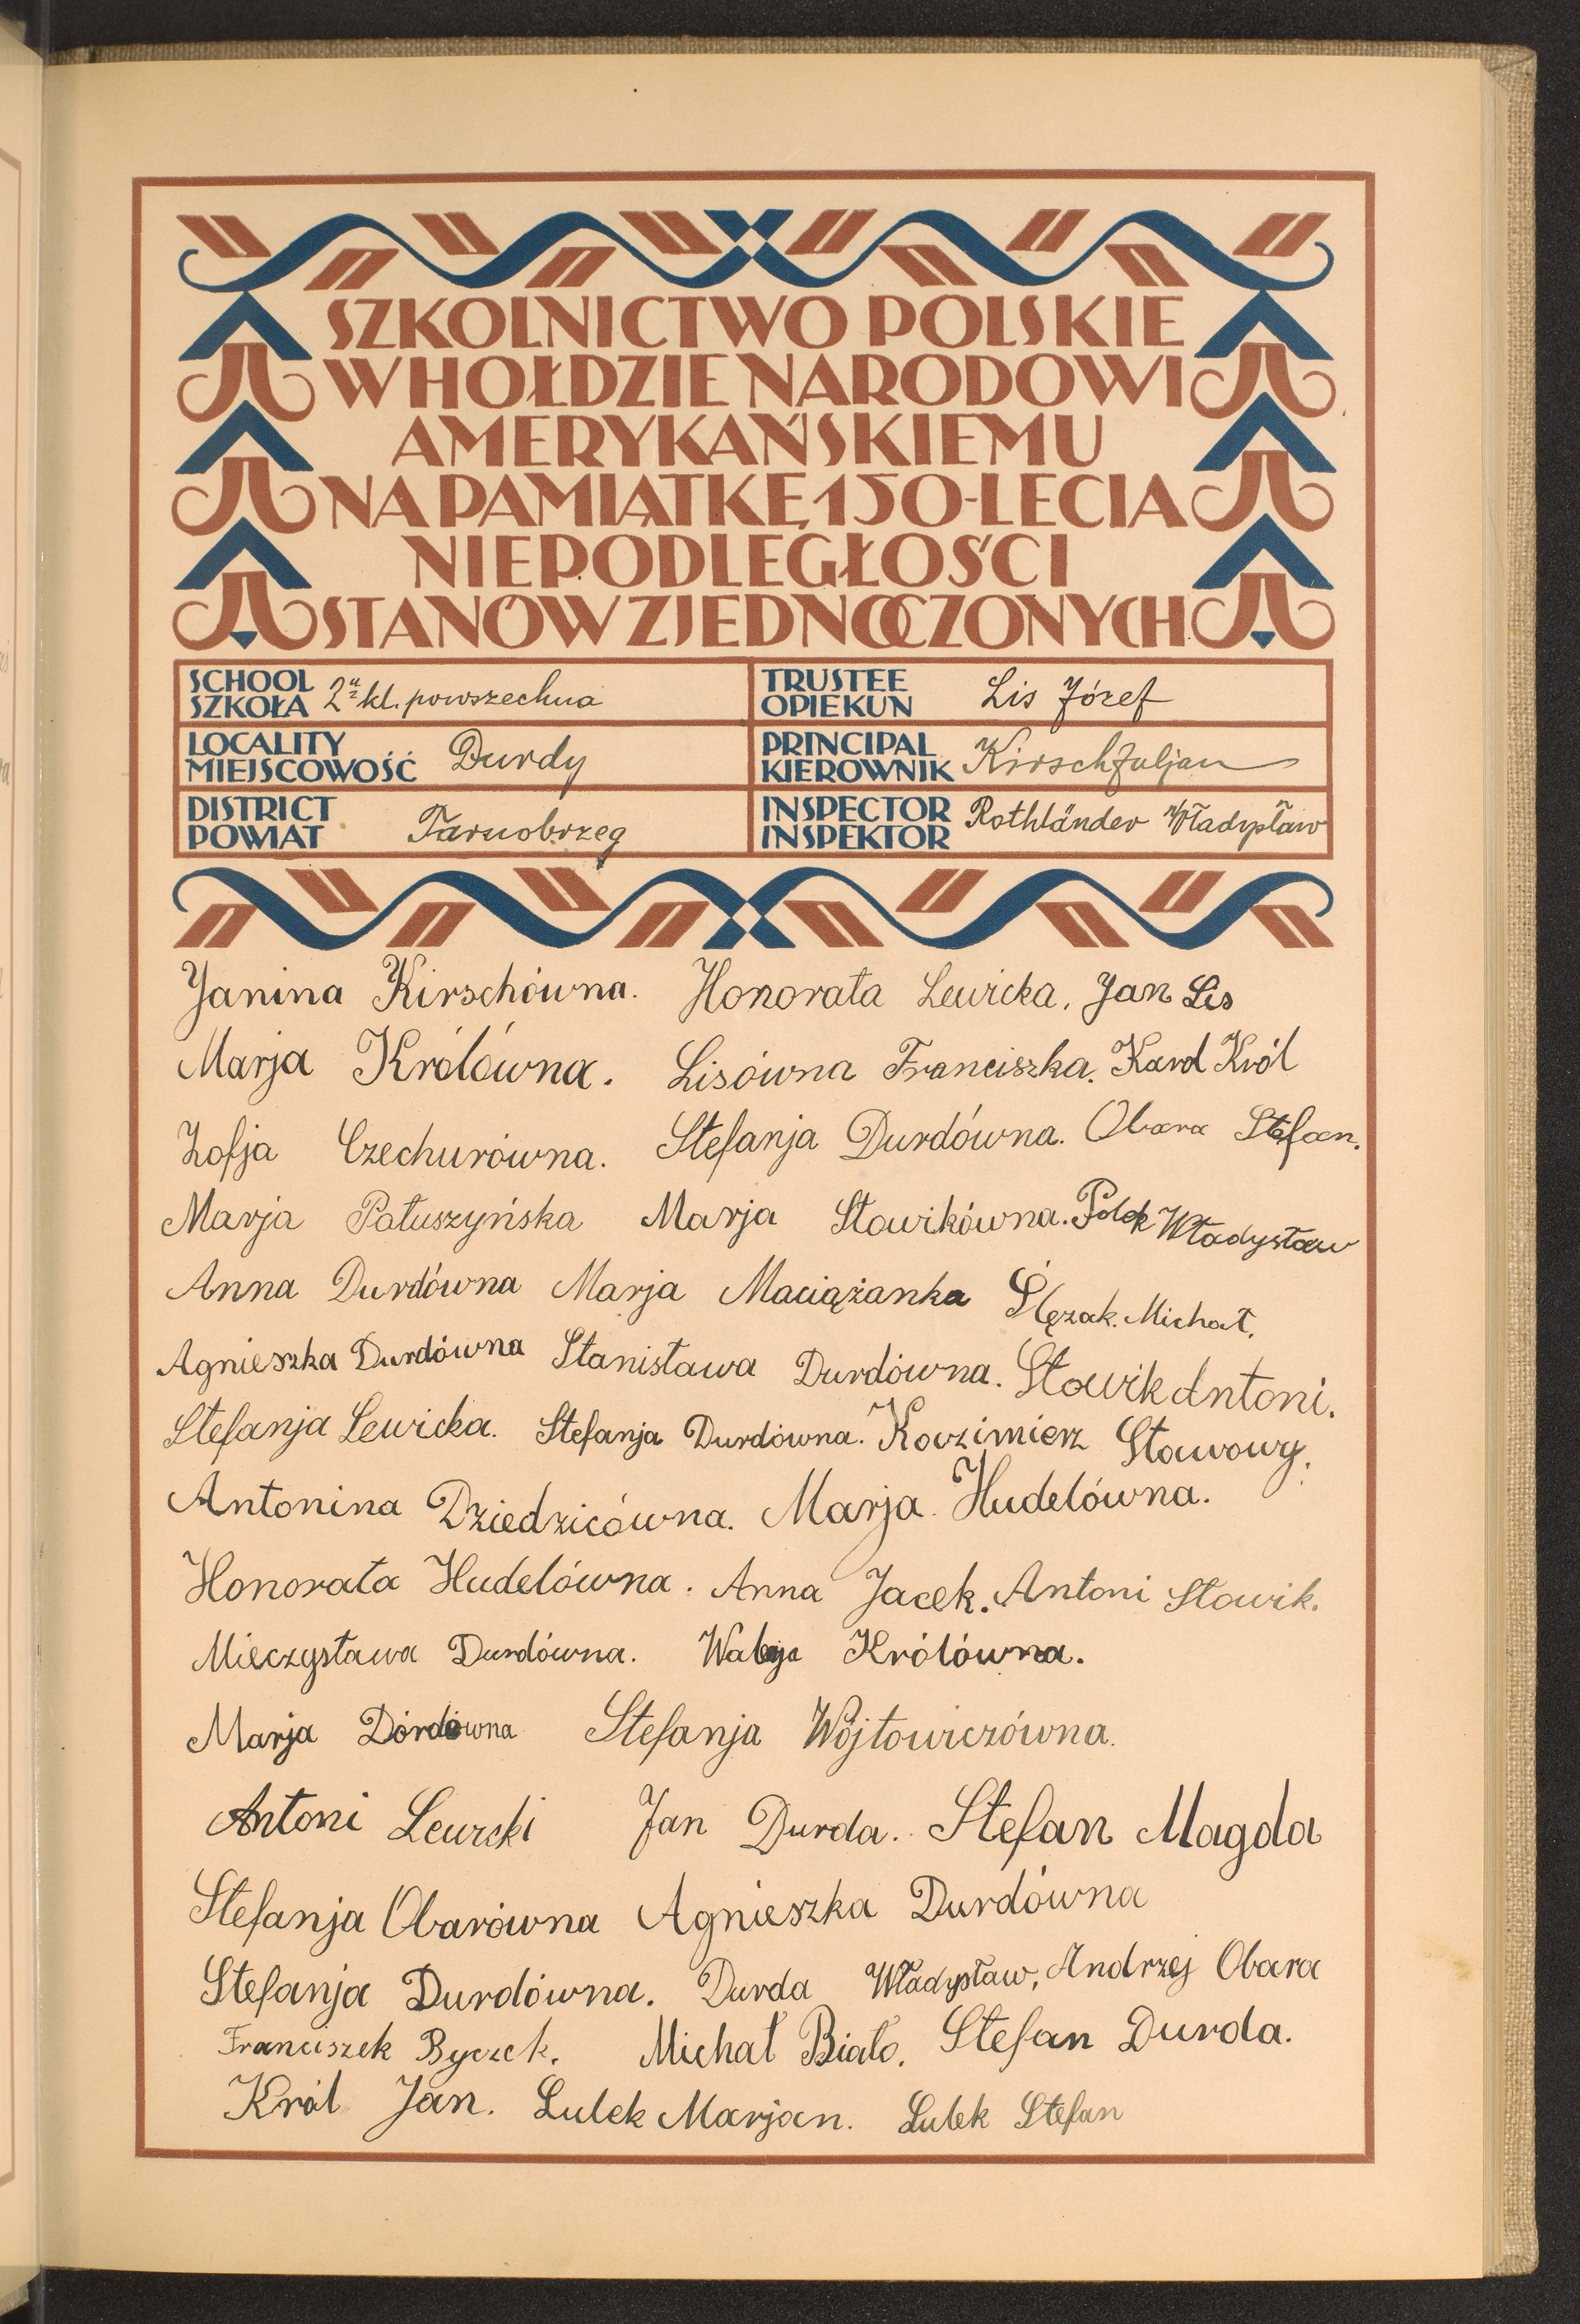 SZKOLNICTWO POLSKIE
W HOŁDZIE NARODOWI
AMERYKAŃSKIEMU
NA PAMIĄTKĘ 150-LECIA
NIEPODLEGŁOŚCI
STANÓW ZJEDNOCZONYCH
SCHOOL
SZKOŁA 2 kl. powszechna
TRUSTEE
OPIEKUN Lis Józef
LOCALITY
MIEJSCOWOŚĆ Durdy
PRINCIPAL
KIEROWNIK Kirsch Juljan
DISTRICT
POWIAT Tarnobrzeg
INSPECTOR
INSPEKTOR Rothländer Władysław
Janina Kirschówna. Honorata Lewicka, Jan Lis
Marja Królówna. Lisówna Franciszka. Karol Król
Zofja Czechurówna. Stefanja Durdówna. Obara Stefan.
Marja Pałuszyńska Marja Słowikówna. Polek Władysław
Anna Durdówna Marja Maciążanka Ślęzak. Michał.
Agnieszka Durdówna Stanisława Durdówna. Słowik Antoni.
Stefanja Lewicka. Stefanja Durdówna. Kazimierz Stawowy.
Antonina Dziedzicówna. Marja Hudelówna.
Honorata Hudelówna. Anna Jacek. Antoni Słowik.
Mieczysława Durdówna. Królówna.
Marja Dórdówna Stefanja Wójtowiczówna.
Antoni Lewicki Jan Durda. Stefan Magda
Stefanja Obarówna Agnieszka Durdówna
Stefanja Durdówna. Durda Władysław, Andrzej Obara
Franciszek Byczek. Michał Biało. Stefan Durda.
Król Jan. Lulek Marjan. Lulek Stefan